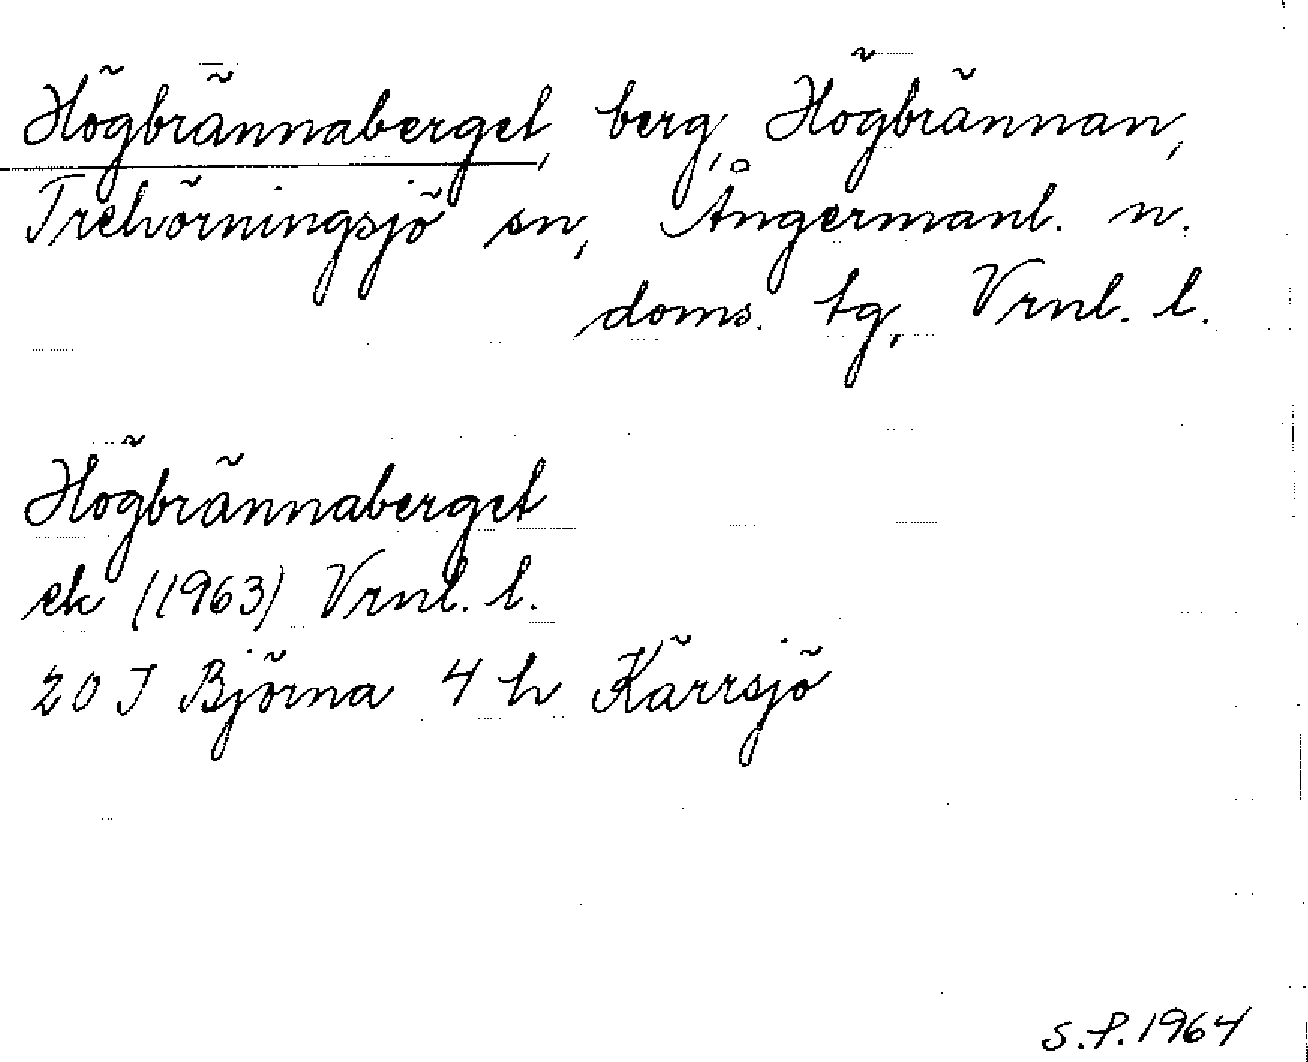 Högbrännaberget, berg, Högbrännan,
Trehörningsjö sn, Ångermanl. n.
doms. tg, Vrnl. l.
Högbrännaberget
ek (1963) Vrnl. l.
20 J Björna 4 h Kärrsjö
S.P. 1964